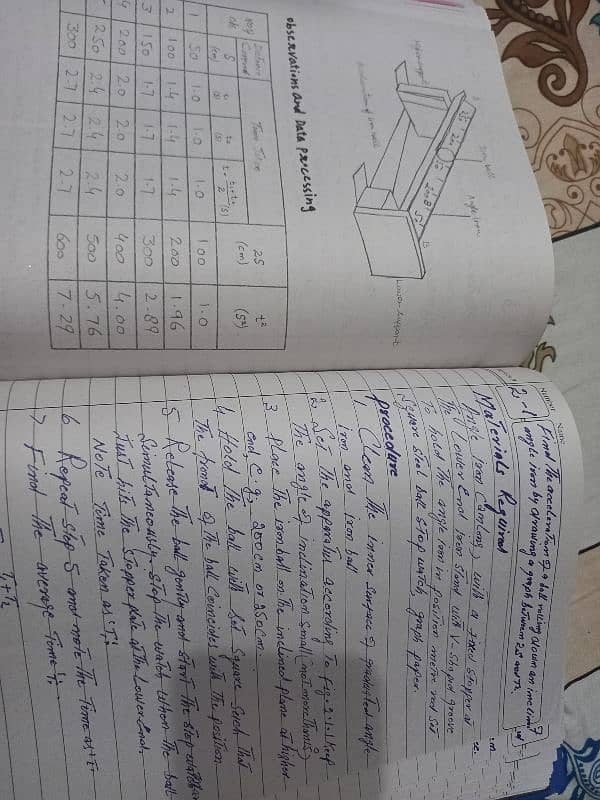 Iron ball
Angle Iron
Wooden support
observations and Data processing
No of obs | Distance Covered S (cm) | Time Taken t₁ (s) | t₂ (s) | t = t₁+t₂/2 (s) | 2S (cm) | t² (s²)
1 | 50 | 1.0 | 1.0 | 1.0 | 100 | 1.0
2 | 100 | 1.4 | 1.4 | 1.4 | 200 | 1.96
3 | 150 | 1.7 | 1.7 | 1.7 | 300 | 2.89
4 | 200 | 2.0 | 2.0 | 2.0 | 400 | 4.00
250 | 2.4 | 2.4 | 2.4 | 500 | 5.76
300 | 2.7 | 2.7 | 2.7 | 600 | 7.29
2.1 Find the acceleration of a ball rolling down an inclined
angle iron by drawing a graph between 2s and t².
Materials Required
Angle Iron with a fixed stopper at
the lower end Iron stand with V-shaped groove
to hold the angle iron in position meter rod set
square steel ball stop watch, graph paper
procedure
1. Clean the inner surface of graduated angle
iron and Iron ball
2. Set the apparatus according to fig-2.1.1 keep
the angle of inclination small (not more than
3 place the iron ball on the inclined plane at higher
end e.g. 200 cm or 250 cm.
4 Hold the ball with Set Square such that
the front of the ball coincides with the position
5 Release the ball gently and start the stop watch
Simultaneously stop the watch when the ball
Just hits the Stopper plate at the lower end.
Note Time Taken as t₁
6 Repeat step 5 and note the time as t₂
7 Find the average time t,
t₁ + t₂